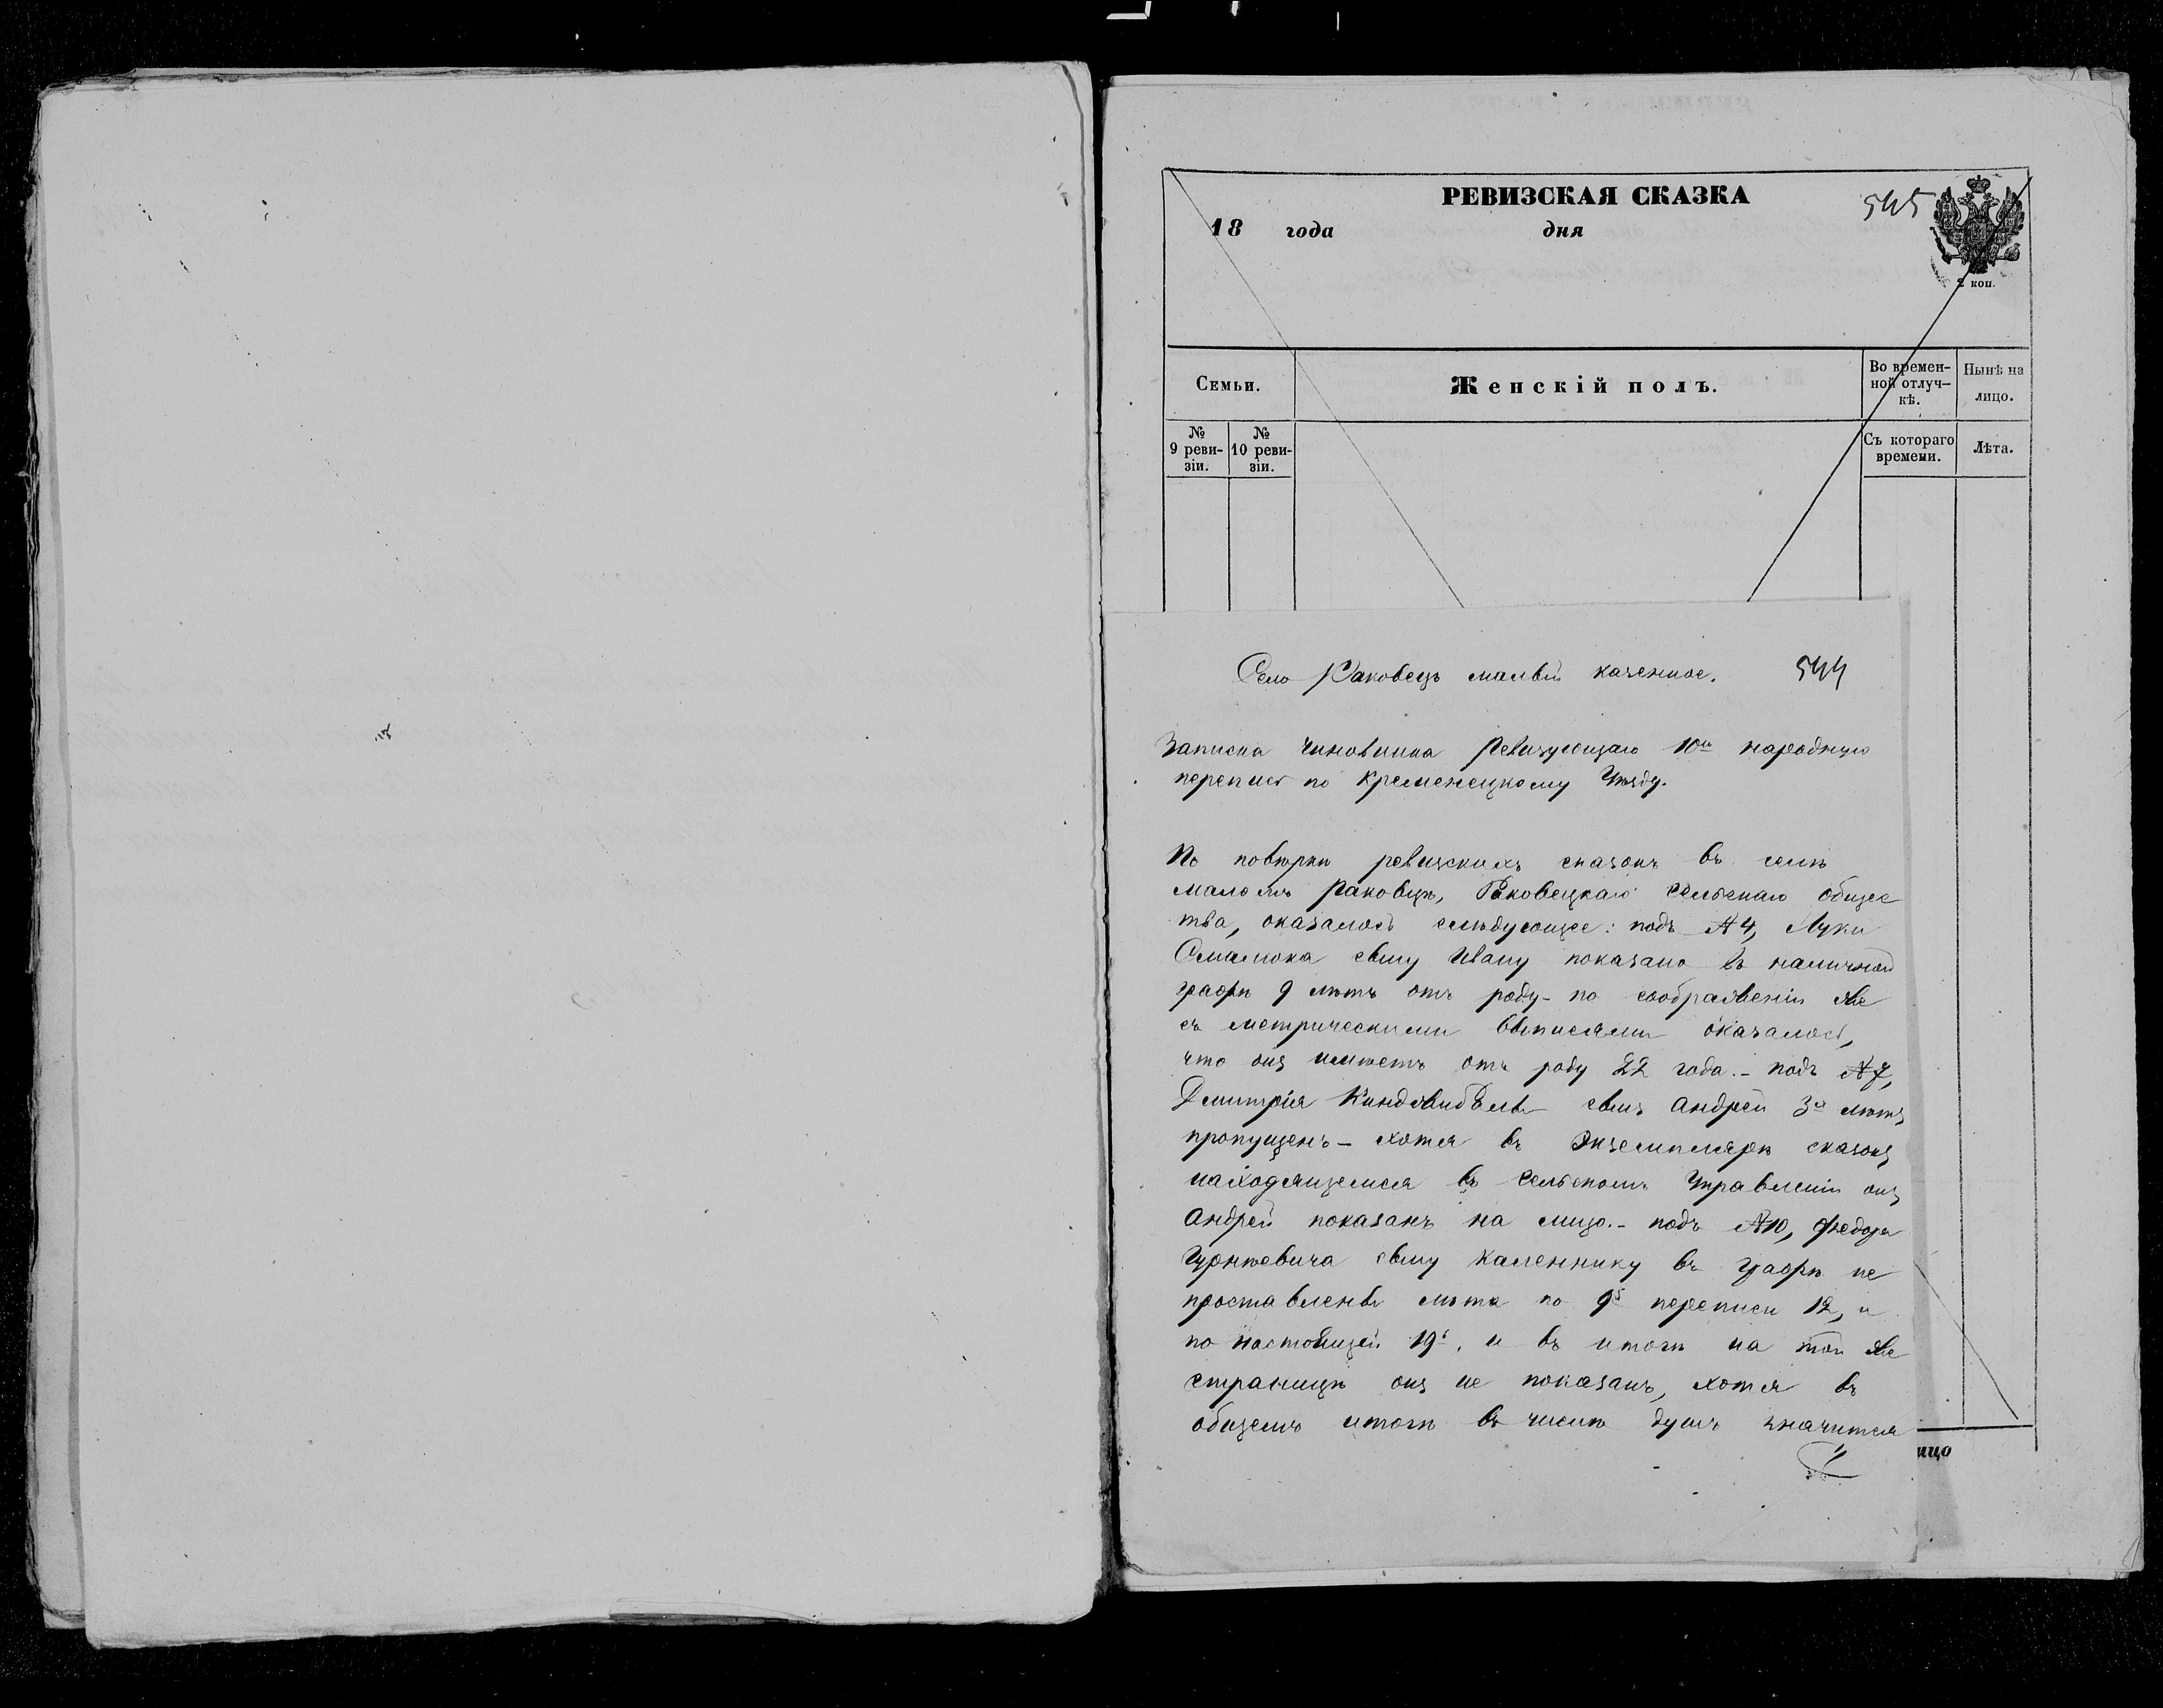 РЕВИЗСКАЯ СКАЗКА
545
18 года дня
2 коп.
Семьи.
Женскій полъ.
Во времен-
ной отлуч-
кѣ.
Нынѣ на
лицо.
№
9 реви-
зіи.
№
10 реви-
зіи.
Съ котораго
времени.
Лѣта.
Село Раковецъ малый казенное. 544
Записка чиновника Ревизующаго 10ю народную
перепись по Кременецкому Уѣзду.
По повѣркѣ ревизскихъ сказокъ въ селѣ
маломъ Раковцѣ, Раковецкаго Сельскаго общес
тва, оказалось слѣдующее: подъ № 4, Луки
сыну Ивану показано въ наличной
графѣ 9 лѣтъ отъ роду - по соображеніи же
съ метрическими выписями оказалось,
что онъ имѣетъ отъ роду 22 года. - подъ № 7,
Дмитрія сынъ Андрей 3х лѣтъ
пропущенъ - хотя въ Экземплярѣ сказокъ
находящемся въ Сельскомъ Управленіи онъ
Андрей показанъ на лицо. - подъ № 10, Федора
сыну Каленнику въ графѣ не
проставлены лѣта по 9й переписи 12, и
по настоящей 19й, и въ итогѣ на той же
страницѣ онъ не показанъ, хотя въ
общемъ итогѣ въ числѣ душъ значится
ицо